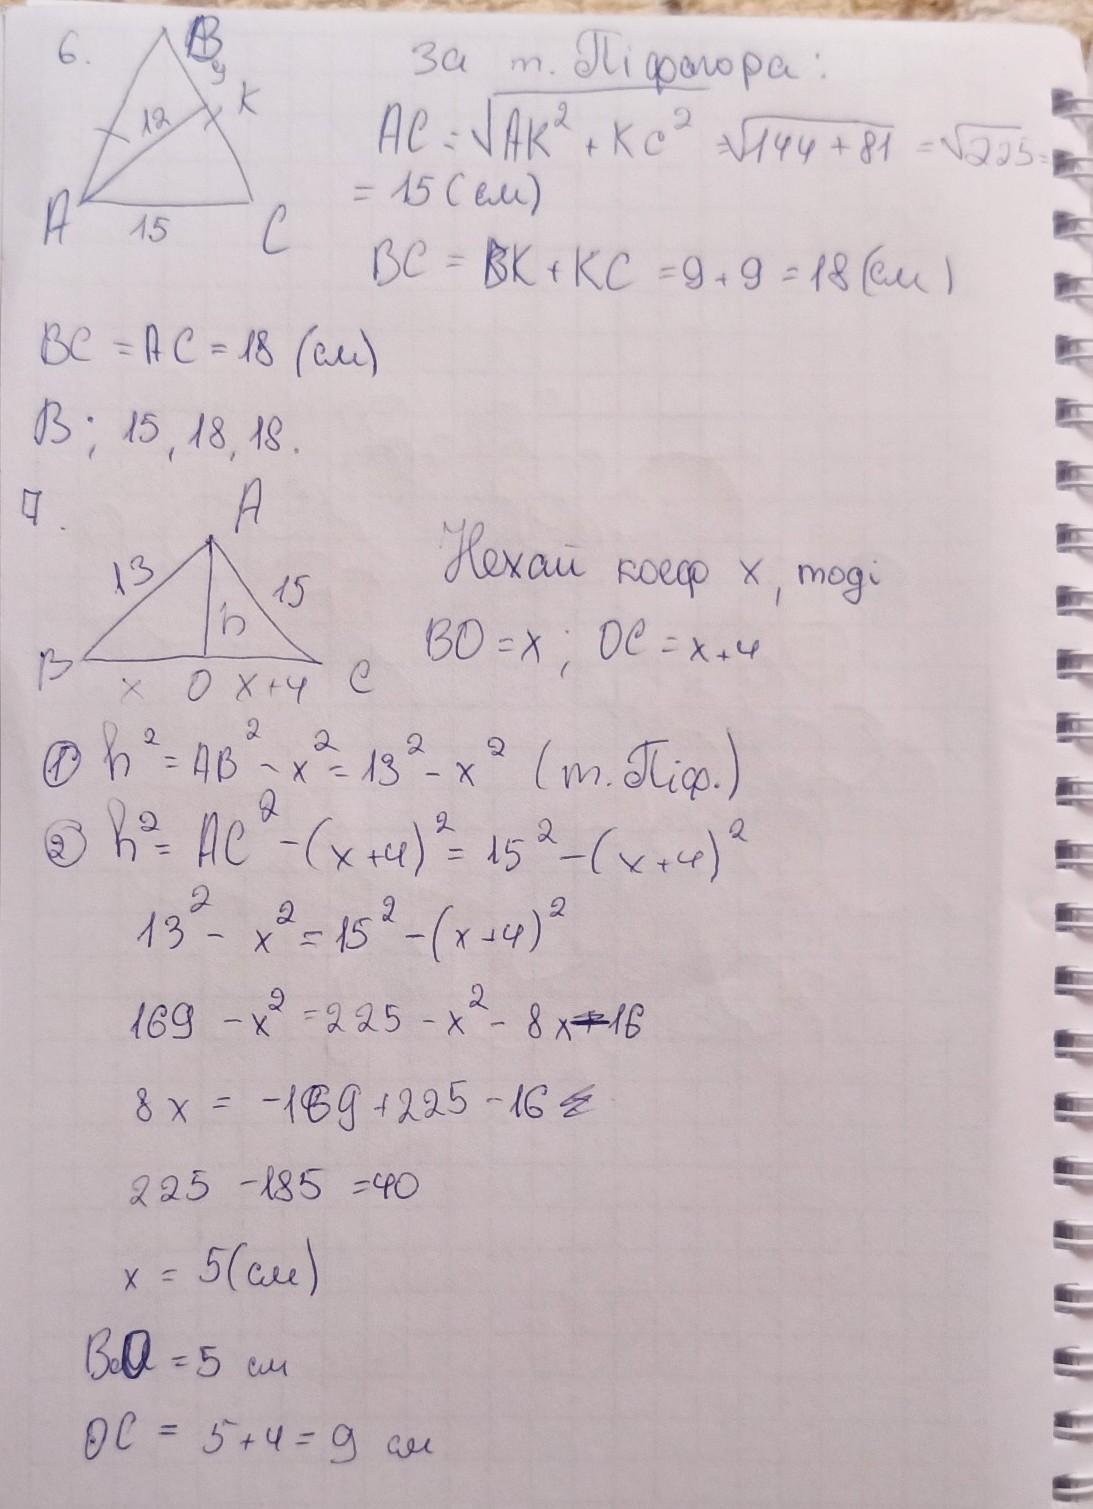 6.
B
9
K
12
A
15
C
За т. Піфагора:
AC = √AK² + KC² = √144 + 81 = √225 =
= 15 (см)
BC = BK + KC = 9 + 9 = 18 (см)
BC = AC = 18 (см)
В: 15, 18, 18.
7.
A
13
15
h
B
x
O
x+4
C
Нехай коеф x, тоді
BO = x; OC = x+4
① h² = AB² - x² = 13² - x² (т. Піф.)
② h² = AC² - (x+4)² = 15² - (x+4)²
13² - x² = 15² - (x+4)²
169 - x² = 225 - x² - 8x - 16
8x = -169 + 225 - 16
225 - 185 = 40
x = 5 (см)
BO = 5 см
OC = 5 + 4 = 9 см